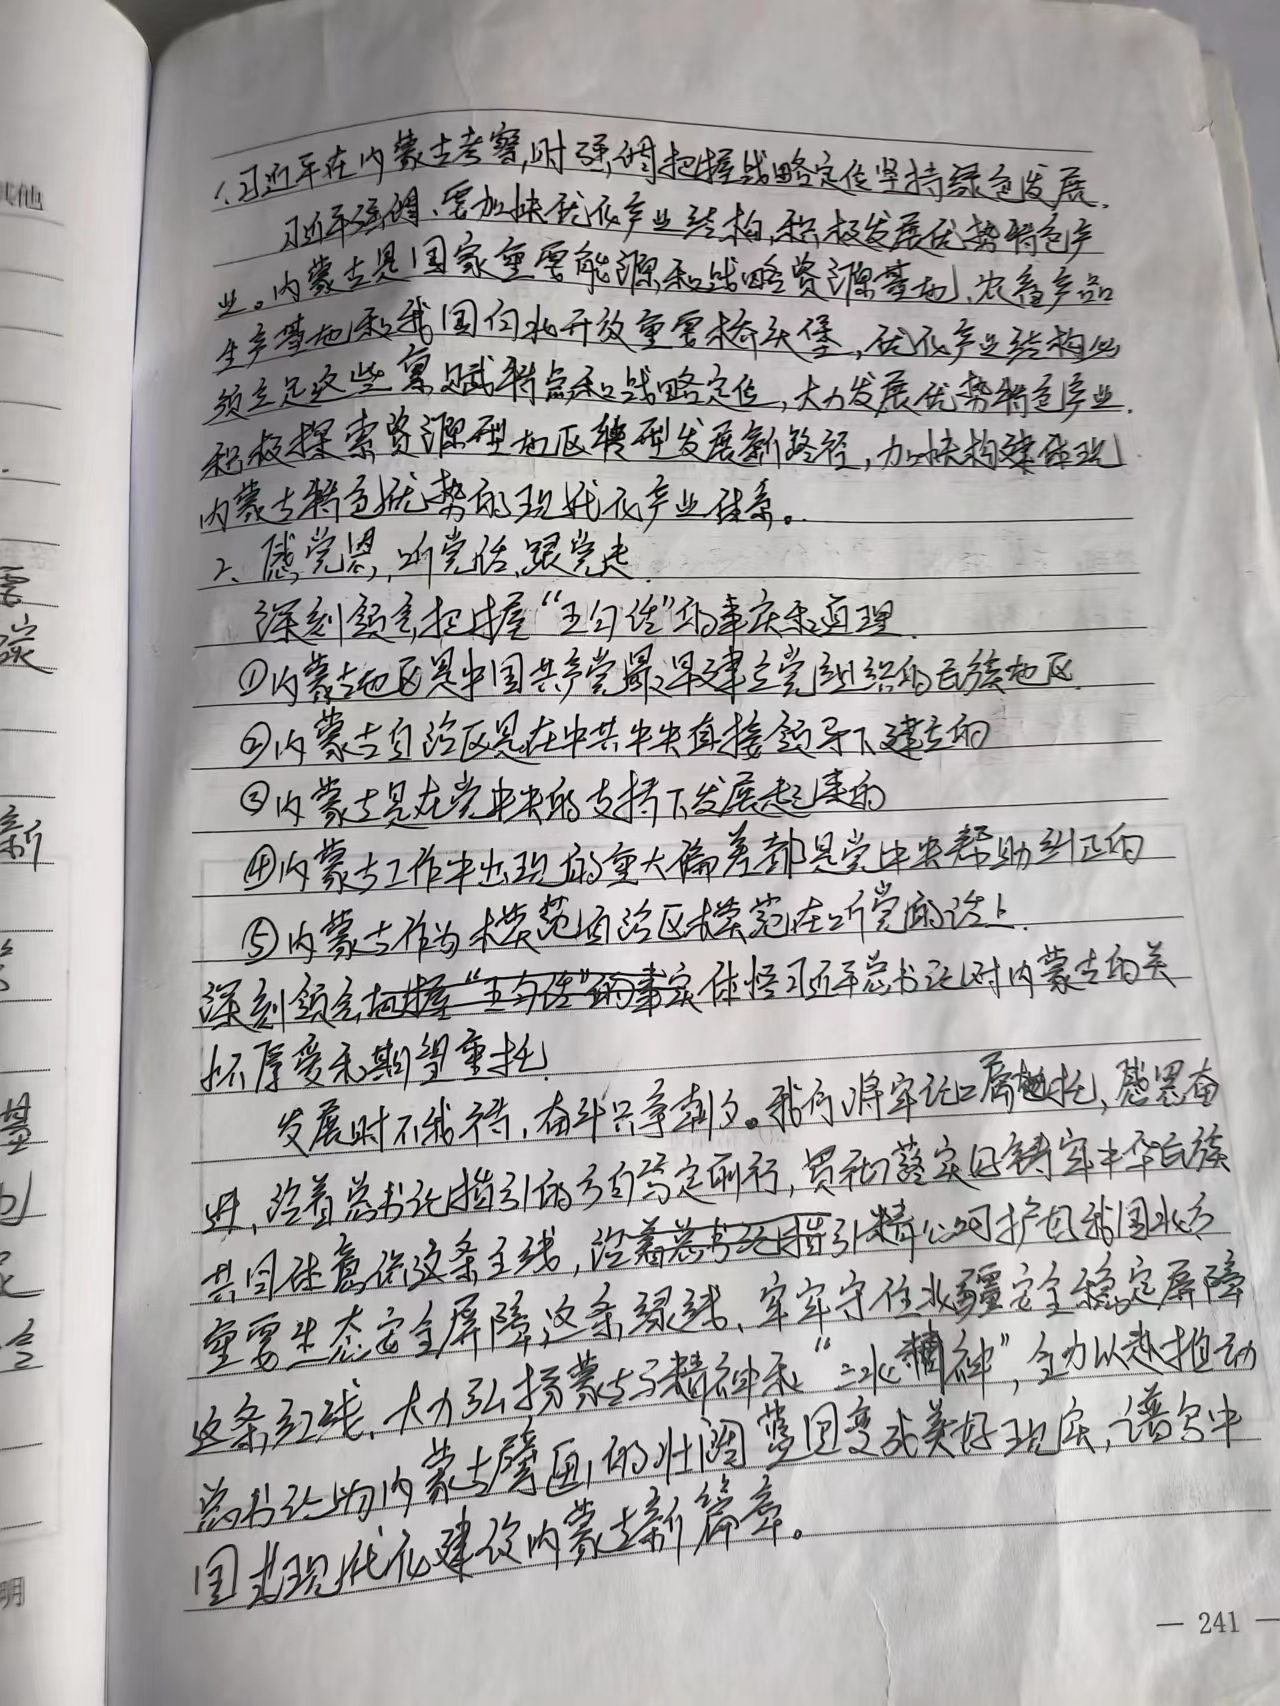 其他
需
碳
新
基
会
明
1.习近平在内蒙古考察时强调把握战略定位坚持绿色发展.
习近平强调、要加快优化产业结构,积极发展优势特色产
业。内蒙古是国家重要能源和战略资源基地、农畜产品
生产基地和我国向北开放重要桥头堡,优化产业结构必
须立足这些禀赋特点和战略定位,大力发展优势特色产业.
积极探索资源型地区转型发展新路径,加快构建体现
内蒙古特色优势的现代化产业体系。
2、感党恩,听党话,跟党走.
深刻领会把握“五句话”的事实和真理.
①内蒙古地区是中国共产党最早建立党组织的民族地区.
②内蒙古自治区是在中共中央直接领导下建立的
③内蒙古是在党中央的支持下发展起来的
④内蒙古工作中出现的重大偏差都是党中央帮助纠正的
⑤内蒙古作为模范自治区模范在听党的话上.
深刻领会把握“五句话”的事实体悟习近平总书记对内蒙古的关
怀厚爱和期望重托.
发展时不我待,奋斗只争朝夕。我们将牢记嘱托,感恩奋
进,沿着总书记指引的方向笃定前行,贯彻落实好铸牢中华民族
共同体意识这条主线,沿着总书记指引精心呵护好我国北方
重要生态安全屏障这条绿线、牢牢守住北疆安全稳定屏障
这条红线、大力弘扬蒙古马精神和“三北精神”,全力以赴推动
总书记为内蒙古擘画的壮阔蓝图变成美好现实,谱写中
国式现代化建设内蒙古新篇章。
— 241 —